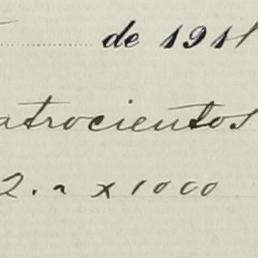 de 191
atrocientos
2.a x 1000